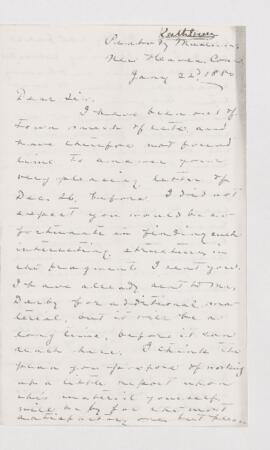 Peabody Museum,
New Haven, Conn.
Jany 22d, 1880
Dear Sir.
I have been out of
town much of late, and
have therefore not found
time to answer your
very pleasing letter of
Dec. 26, before. I did not
expect you would be so
fortunate in finding such
interesting structure in
the fragments I sent you.
I have already sent to Mr.
Darby for additional mat-
terial, but it will be a
long time, before it can
reach here. I think the
plan you propose of working
up a little report upon
this material yourself,
will be by far the most
satisfactory one, but please